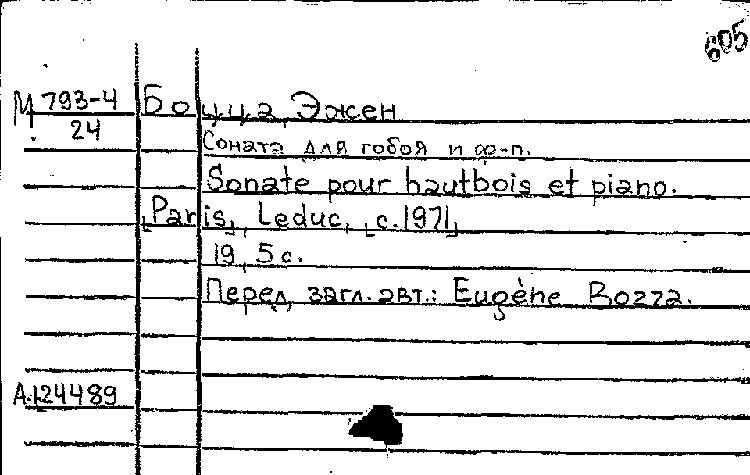 605
М 793-4
24
Боцца, Эжен
Соната для гобоя и ф-п.
Sonate pour hautbois et piano.
[Paris], Leduc, [c.1971]
19, 5 с.
Перед загл. авт.: Eugène Bozza.
А.124489